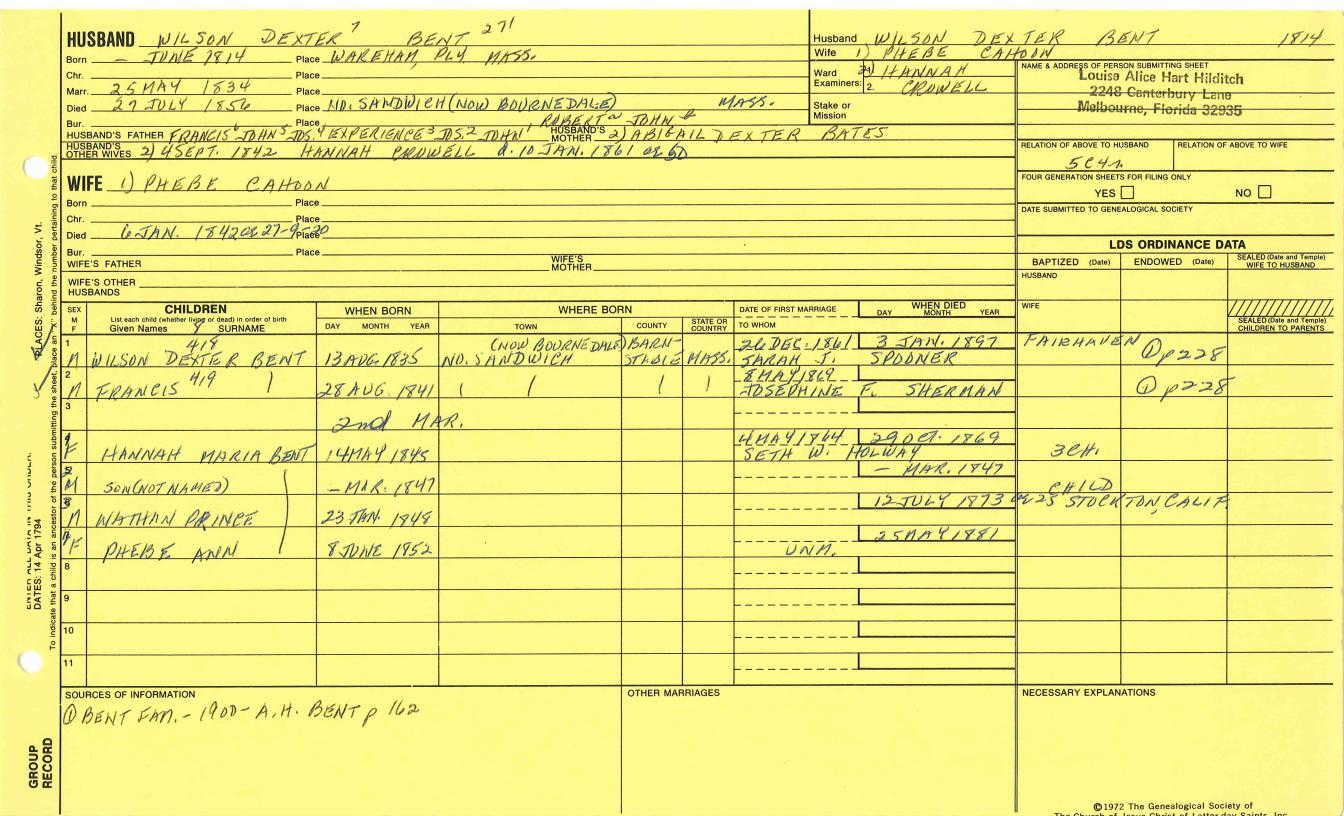 HUSBAND WILSON DEXTER 7 BENT 271
Born — JUNE 1814 Place WAREHAM, PLY. MASS.
Chr. Place
Marr. 25 MAY 1834 Place
Died 27 JULY 1856 Place NO. SANDWICH (NOW BOURNEDALE) MASS.
Bur. Place
HUSBAND'S FATHER FRANCIS 6 JOHN 5 JOS. 4 EXPERIENCE 3 JOS. 2 JOHN 1 ROBERT JOHN
HUSBAND'S MOTHER 2) ABIGAIL DEXTER BATES
HUSBAND'S OTHER WIVES 2) 4 SEPT. 1842 HANNAH CROWELL d. 10 JAN. 1861 ae 50
Husband WILSON DEXTER BENT 1814
Wife 1) PHEBE CAHOON
Ward
Examiners: 2) HANNAH
2. CROWELL
Stake or
Mission
NAME & ADDRESS OF PERSON SUBMITTING SHEET
Louise Alice Hart Hilditch
2248 Canterbury Lane
Melbourne, Florida 32935
RELATION OF ABOVE TO HUSBAND
5C4r.
RELATION OF ABOVE TO WIFE
FOUR GENERATION SHEETS FOR FILING ONLY
YES NO
DATE SUBMITTED TO GENEALOGICAL SOCIETY
WIFE 1) PHEBE CAHOON
Born Place
Chr. Place
Died 6 JAN. 1842 ae 27-9-20 Place
Bur. Place
WIFE'S FATHER
WIFE'S MOTHER
WIFE'S OTHER
HUSBANDS
LDS ORDINANCE DATA
BAPTIZED (Date) ENDOWED (Date) SEALED (Date and Temple) WIFE TO HUSBAND
HUSBAND
WIFE
SEALED (Date and Temple)
CHILDREN TO PARENTS
SEX
M
F
CHILDREN
List each child (whether living or dead) in order of birth
Given Names 8 SURNAME
WHEN BORN
DAY MONTH YEAR
WHERE BORN
TOWN COUNTY STATE OR COUNTRY
DATE OF FIRST MARRIAGE
TO WHOM
WHEN DIED
DAY MONTH YEAR
1 419 (NOW BOURNEDALE) BARN- 26 DEC. 1861 3 JAN. 1897 FAIRHAVEN
M WILSON DEXTER BENT 13 AUG. 1835 NO. SANDWICH STABLE MASS. SARAH J. SPOONER ① p 228
2 419 8 MAY 1869
M FRANCIS 28 AUG. 1841 JOSEPHINE F. SHERMAN ① p 228
3
2nd MAR.
4 4 MAY 1864 29 OCT. 1869
F HANNAH MARIA BENT 14 MAY 1845 SETH W. HOLWAY 3 CH.
5 — MAR. 1847
M SON (NOT NAMED) — MAR. 1847 CHILD
6 12 JULY 1873 ae 25 STOCKTON, CALIF.
M NATHAN PRINCE 23 JAN. 1848
7 25 MAY 1881
F PHEBE ANN 8 JUNE 1852 UNM.
8
9
10
11
SOURCES OF INFORMATION
① BENT FAM. - 1900 - A.H. BENT p 162
OTHER MARRIAGES
NECESSARY EXPLANATIONS
©1972 The Genealogical Society of
The Church of Jesus Christ of Latter-day Saints, Inc.
PLACES: Sharon, Windsor, Vt.
DATES: 14 Apr 1794
To indicate that a child is an ancestor of the person submitting the sheet, place an "X" behind the number pertaining to that child.
GROUP
RECORD